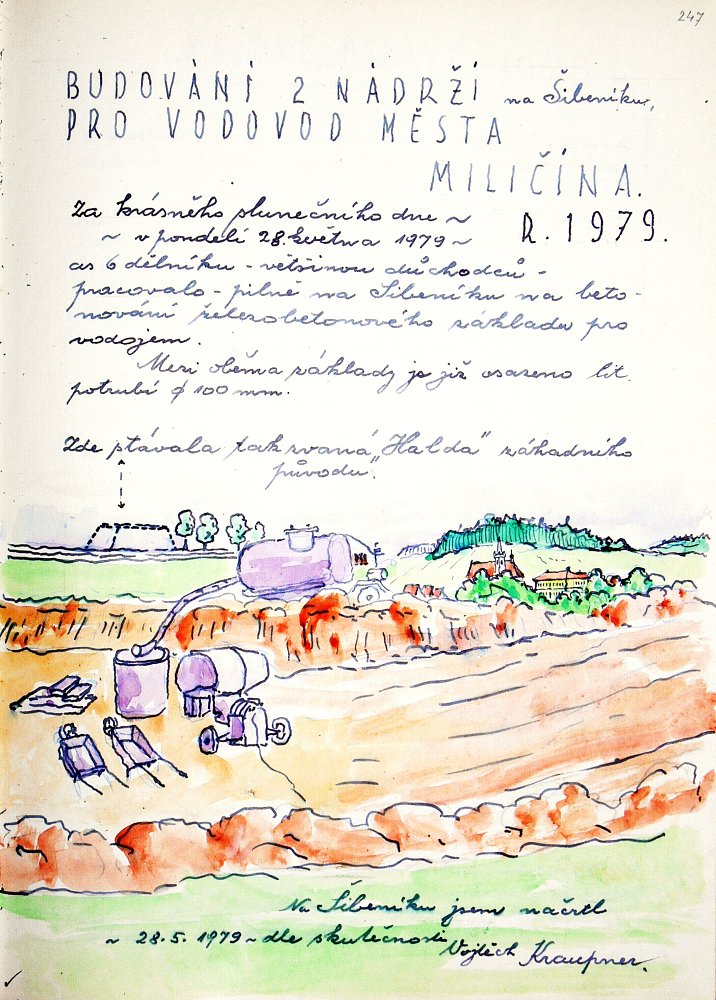 247
BUDOVÁNÍ 2 NÁDRŽÍ na Šibeníku,
PRO VODOVOD MĚSTA
MILIČÍNA.
R. 1979.
Za krásného slunečního dne ~
~ v pondělí 28. května 1979 ~
as 6 dělníku - většinou důchodců -
pracovalo - pilně na Šibeníku na beto-
nování železobetonového základu pro
vodojem.
Mezi oběma základy je již osazeno lit.
potrubí ∅ 100 mm.
Zde stávala tak zvaná „Halda" záhadního
původu.
Na Šibeníku jsem načrtl
~ 28. 5. 1979 ~ dle skutečnosti
Vojtěch Kraupner.